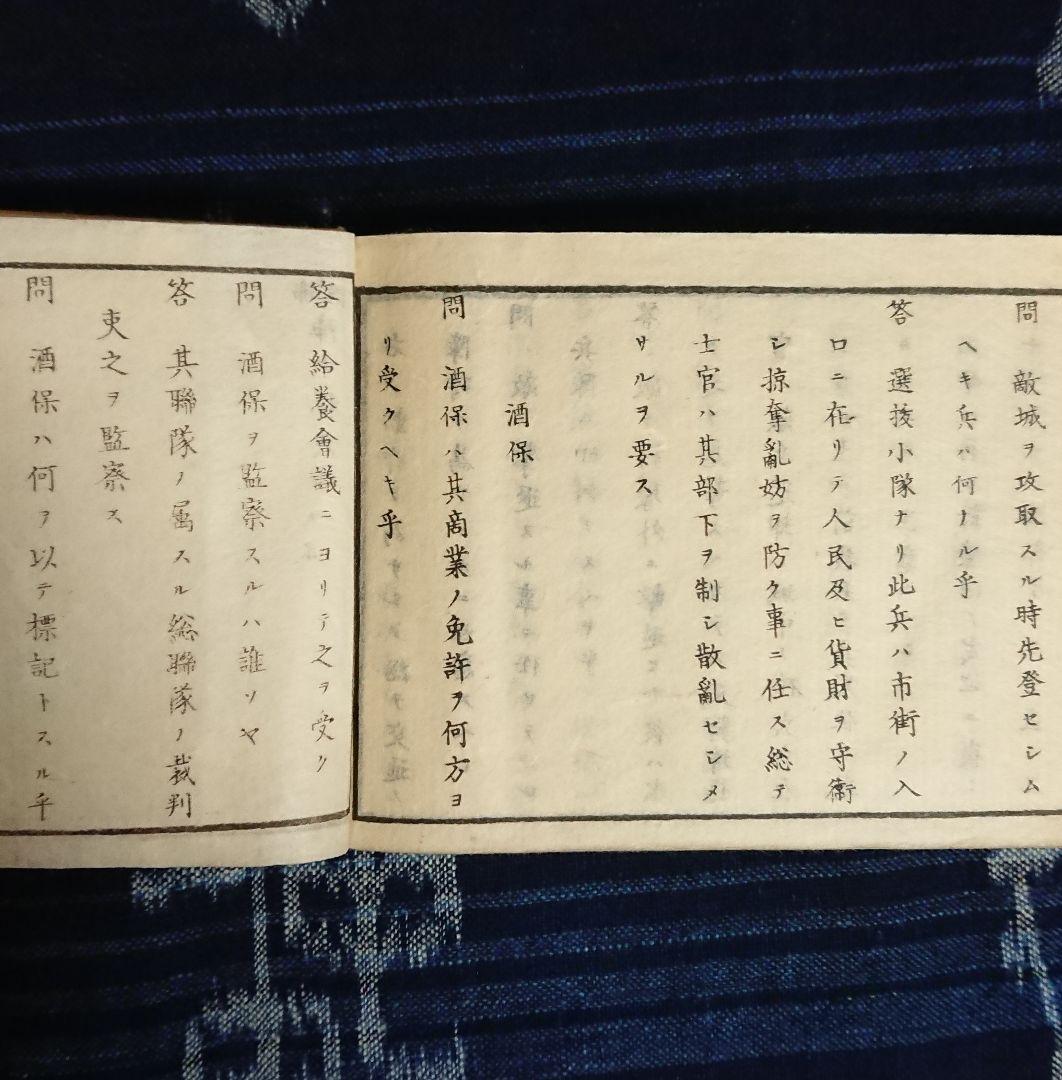 問　敵城ヲ攻取スル時先登セシム
ヘキ兵ハ何ナル乎
答　選抜小隊ナリ此兵ハ市街ノ入
口ニ在リテ人民及ヒ貨財ヲ守衛
シ掠奪亂妨ヲ防ク事ニ任ス総テ
士官ハ其部下ヲ制シ散亂セシメ
サルヲ要ス
酒保
問　酒保ハ其商業ノ免許ヲ何方ヨ
リ受クヘキ乎
答　給養會議ニヨリテ之ヲ受ク
問　酒保ヲ監察スルハ誰ソヤ
答　其聯隊ノ属スル総聯隊ノ裁判
吏之ヲ監察ス
問　酒保ハ何ヲ以テ標記トスル乎